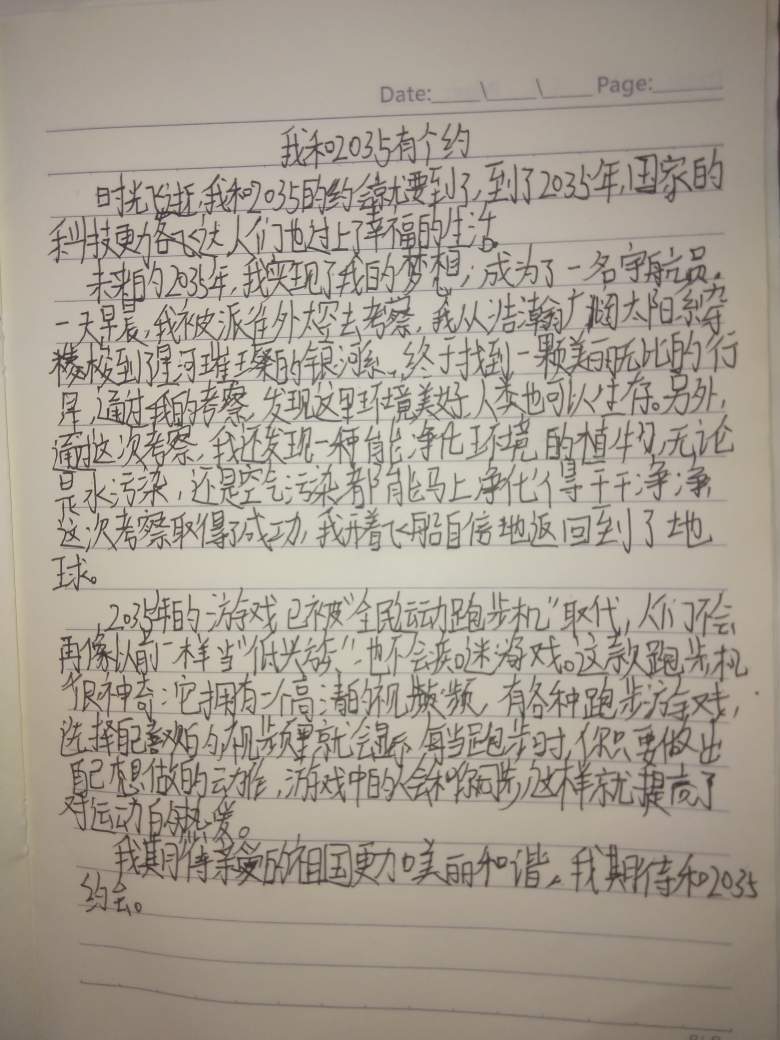 Date:____\____\____ Page:______
我和2035有个约
时光飞逝,我和2035的约会就要到了,到了2035年,国家的
科技更加发达人们也过上了幸福的生活。
未来的2035年,我实现了我的梦想,成为了一名宇航员。
一天早晨,我被派往外太空去考察,我从浩瀚广阔太阳系穿
梭到了星河璀璨的银河系,终于找到一颗美丽无比的行
星,通过我的考察,发现这里环境美好,人类也可以生存。另外,
通过这次考察,我还发现一种能净化环境的植物,无论
是水污染,还是空气污染都能马上净化得干干净净,
这次考察取得了成功,我开着飞船自信地返回到了地
球。
2035年的游戏已被"全民运动跑步机"取代,人们不会
再像以前一样当"低头族",也不会痴迷游戏。这款跑步机
很神奇:它拥有一个高清的视频,有各种跑步游戏,
选择自己喜欢的,视频里就会显示,每当跑步时,你只要做出
自己想做的动作,游戏中的人会和你同步,这样就提高了
对运动的热爱。
我期待亲爱的祖国更加美丽和谐,我期待和2035
约会。